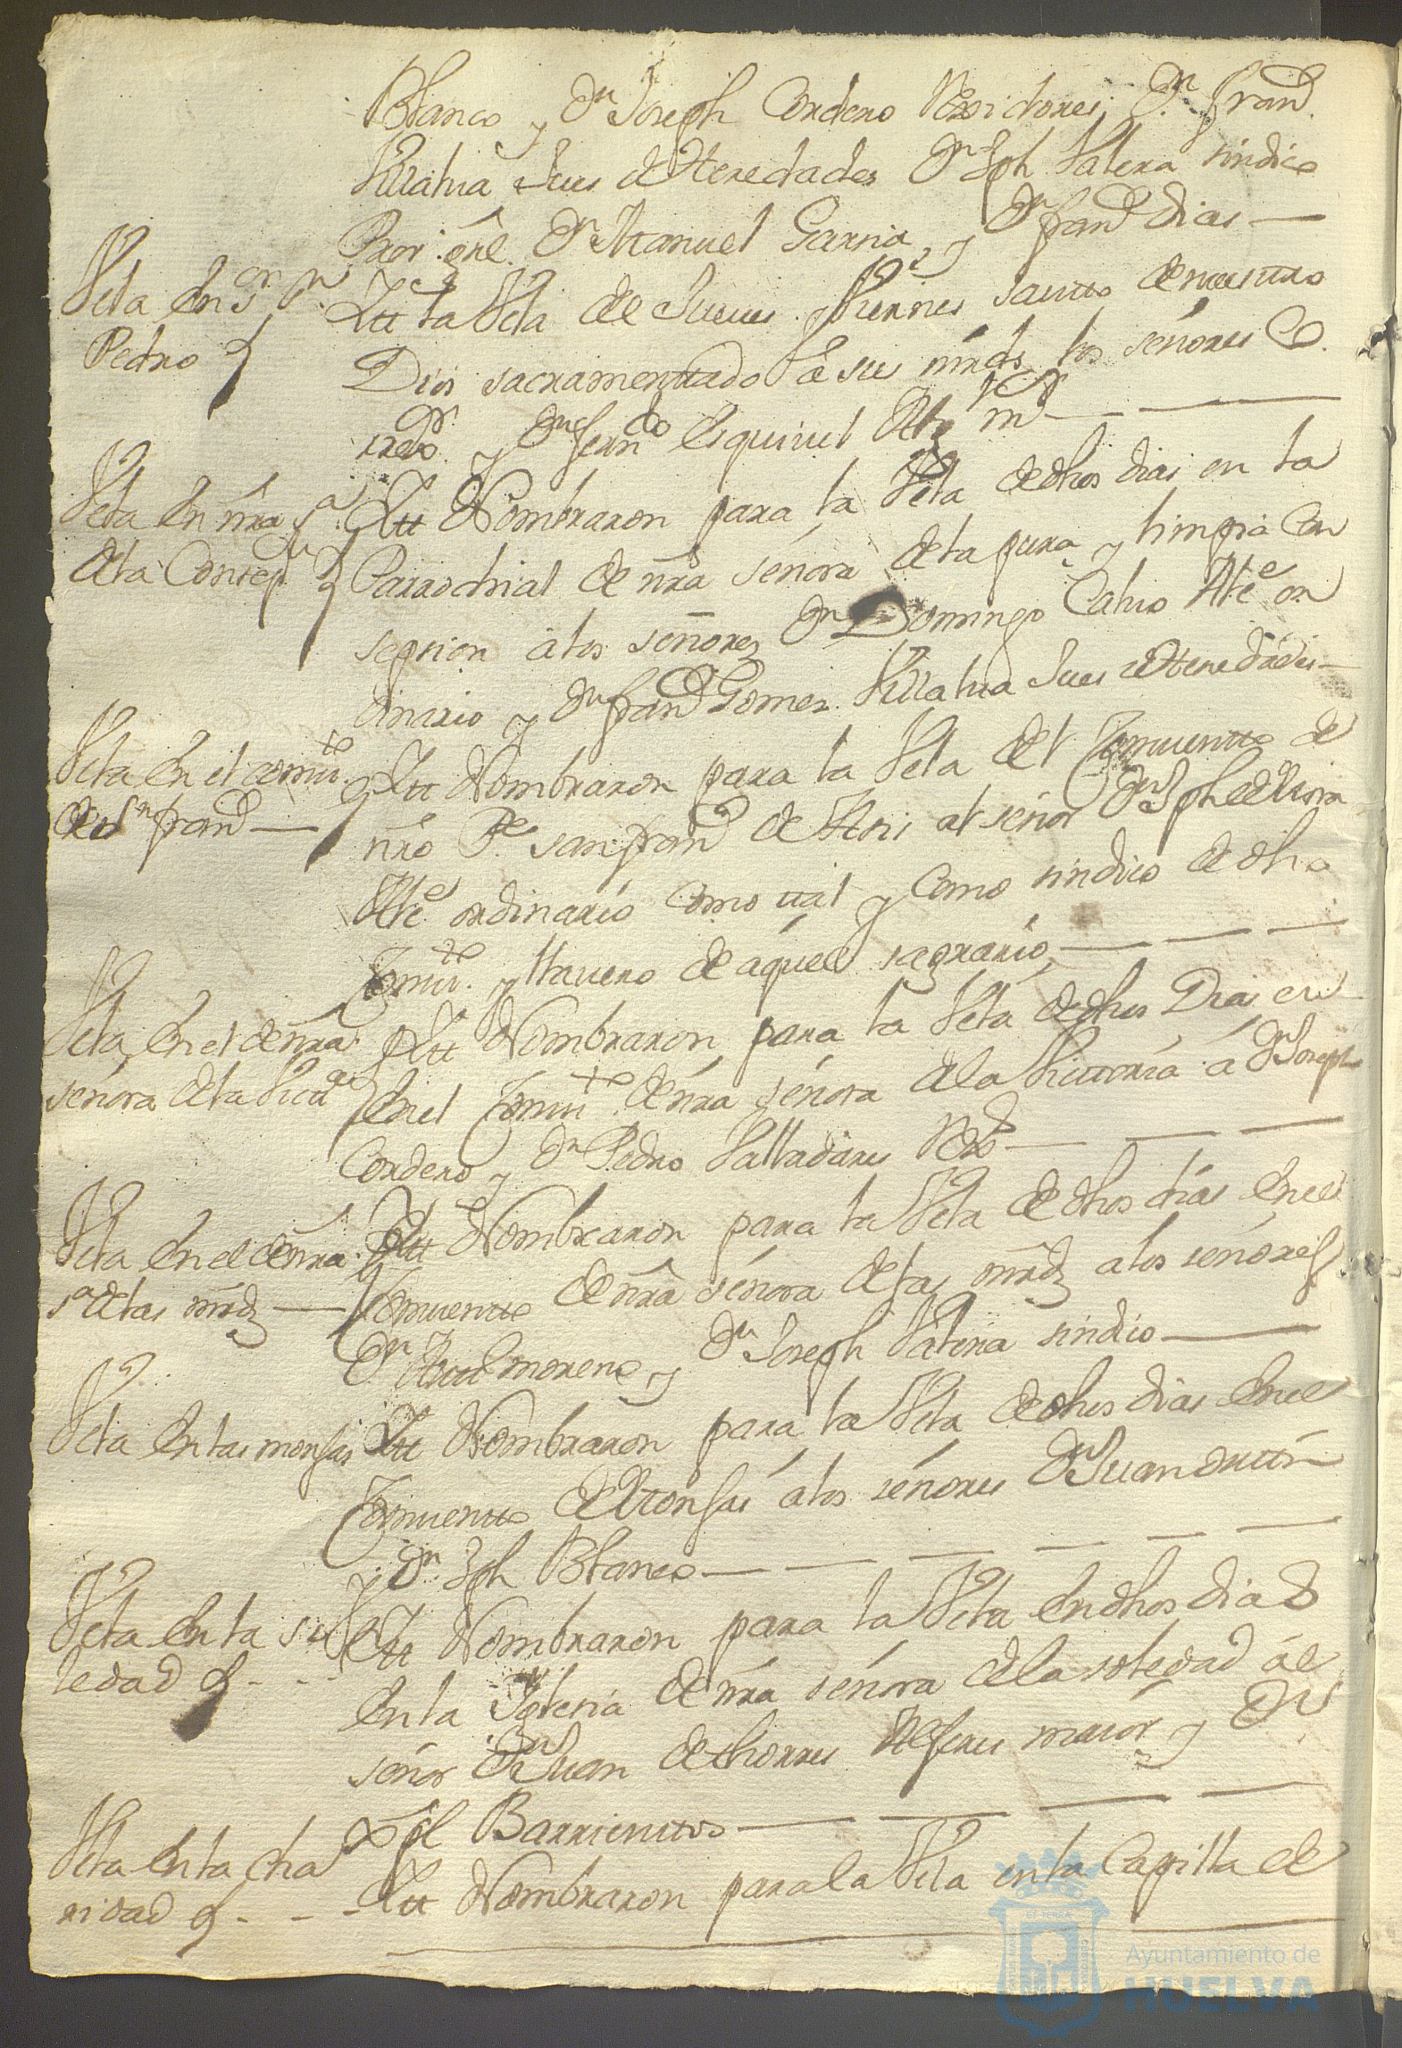 Blanco y Dn Joseph Cordero Rexidores, Dn Franco
Villalua Jues de Heredades Dn Jph Valera sindico
Pror Gnl. Dn Manuel Garcia, y Dn Franco Dias —
Vela En Sor Sn
Pedro
Ytt la Vela de Jueves y Viernes Santto de nuesttro
Dios sacramenttado a sus mrds los señores Co
rredor y Dn Ferndo Esquivel Alg mor — — —
Vela En nra Sa
de la Concepn
Ytt Nombraron para la Vela de dhos dias en la
Parrochial de nra señora de la pura y limpia Con
sepsion a los señores Dn Domingo Calvo Alce or
dinario y Dn Franco Gomez Villalua Jues de Heredades —
Vela En el Convto
de Sn Franco —
Ytt Nombraron para la Vela del Convento de
nro Pe san Franco de Asis al señor Dn Jph de Mora
Alce ordinario como ttal y como sindico de dho
Convto y llavero de aquel sagrario, — — —
Vela En el de nra
señora de la Victa
Ytt Nombraron para la Vela de dhos Dias en
En el Convto de nra señora de la Victtoria a Dn Joseph
Cordero y Dn Pedro Valladares Rexs — — —
Vela En el de nra
Sa de las mrds —
Ytt Nombraron para la Vela de dhos dias En el
Convento de nra señora de las mrds a los señores
Dn moreno, y Dn Joseph Valera sindico —
Vela En las monjas
Ytt Nombraron para la Vela de dhos dias En el
Convento de Monjas a los señores Dn Juan
y Dn Jph Blanco — — — — — —
Vela En la so
ledad - -
Ytt Nombraron para la Vela En dhos dias
En la Iglesia de nra señora de la soledad al
señor Dn Juan de thorres Alferes maior y Dn
Xptl Barrienttos — — — —
Vela En la cha
ridad - - -
Ytt Nombraron para la Vela en la Capilla de
Ayuntamiento de
HUELVA